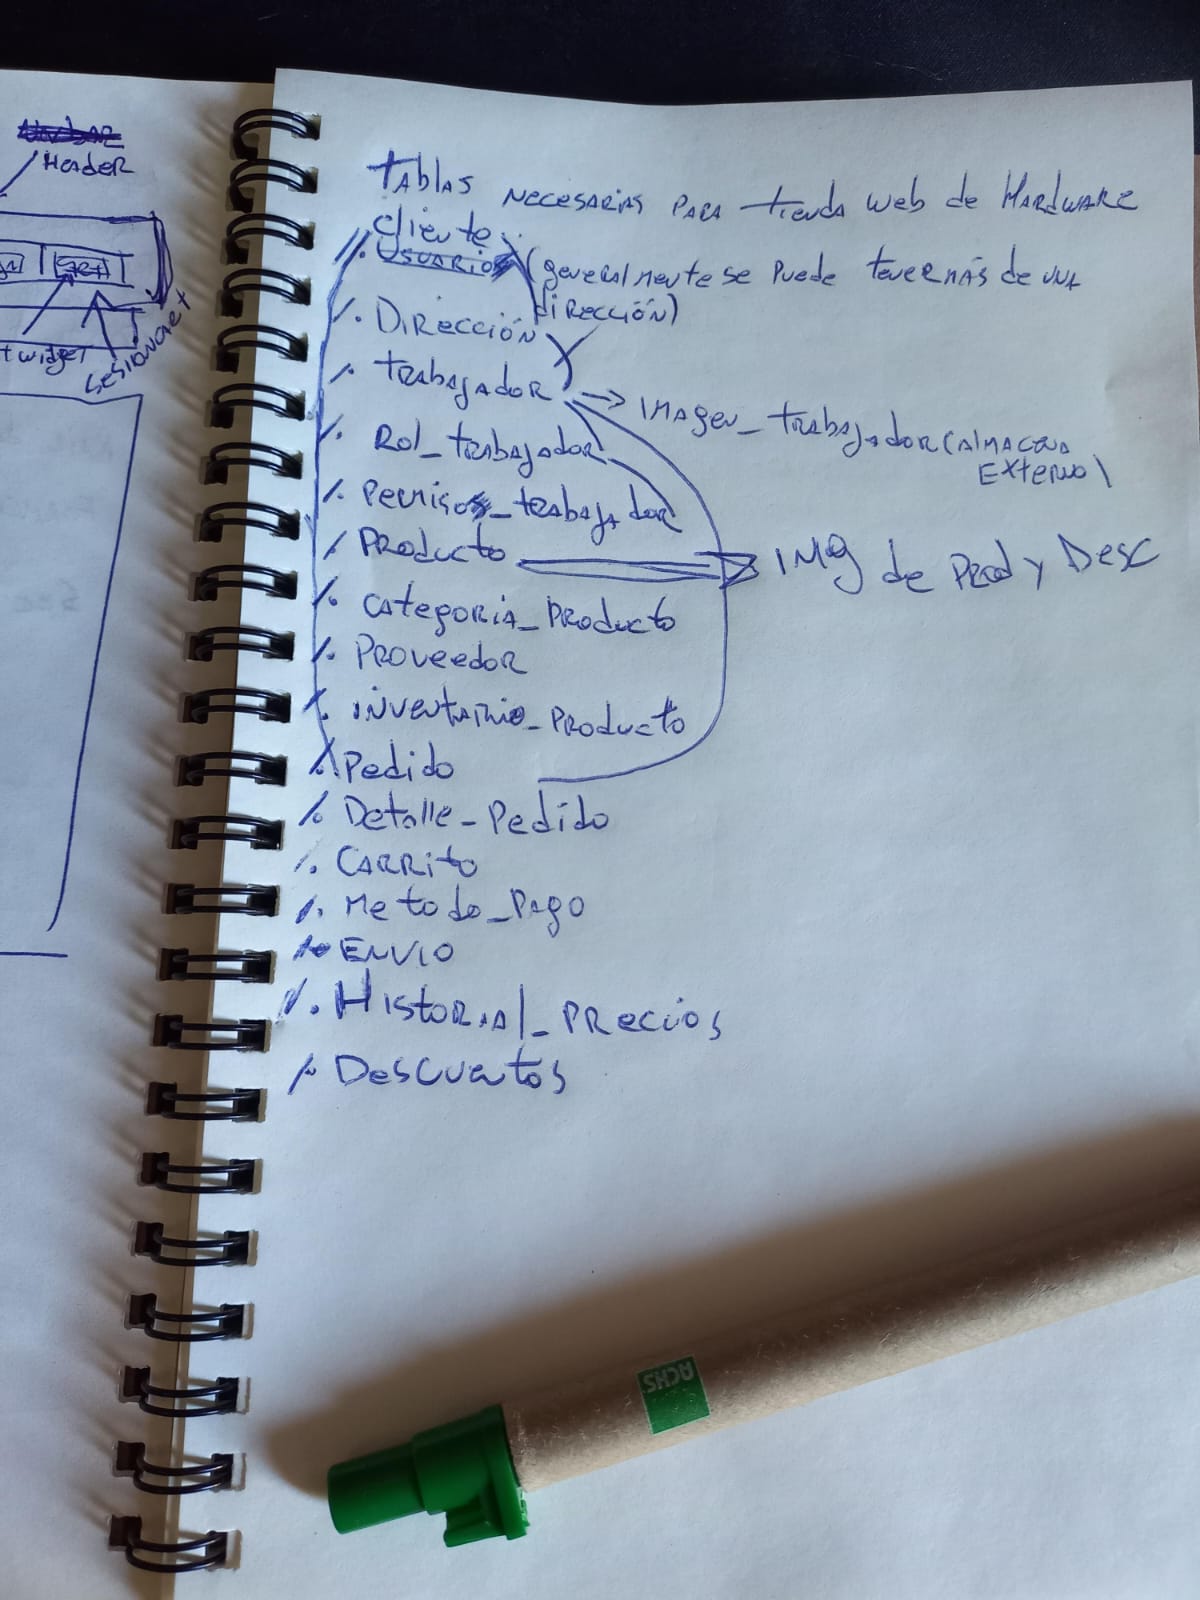 Header
t widget
Tablas necesarias para tienda web de Hardware
Cliente
Usuarios (generalmente se puede tener más de una
dirección)
Dirección
Trabajador → Imagen_trabajador (almacena
externo)
Rol_trabajador
Permisos_trabajador
Producto → IMG de Prod y Desc
Categoria_Producto
Proveedor
Inventario_Producto
Pedido
Detalle_Pedido
Carrito
Metodo_Pago
Envio
Historial_Precios
Descuentos
ACHS